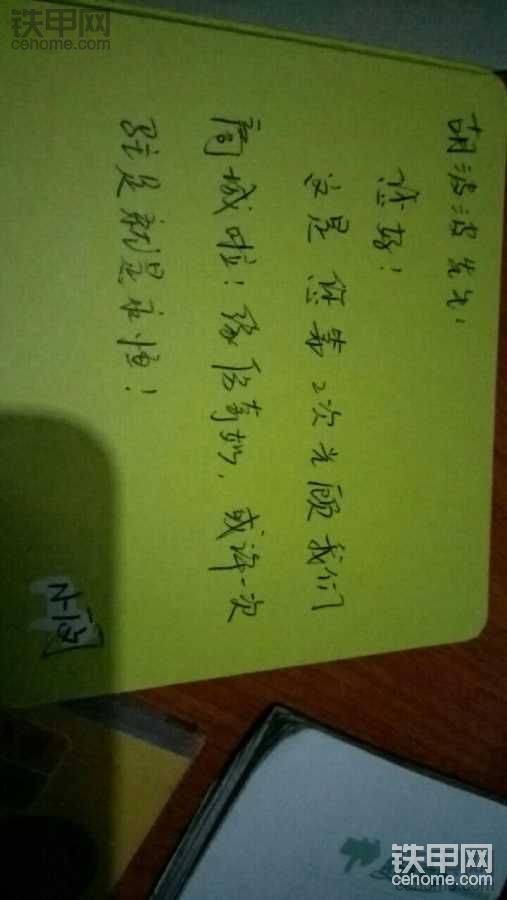 铁甲网
cehome.com
胡波波先生:
您好!
这是您第2次光顾我们
商城啦!缘份奇妙,或许一次
驻足就是永恒!
铁甲网
cehome.com